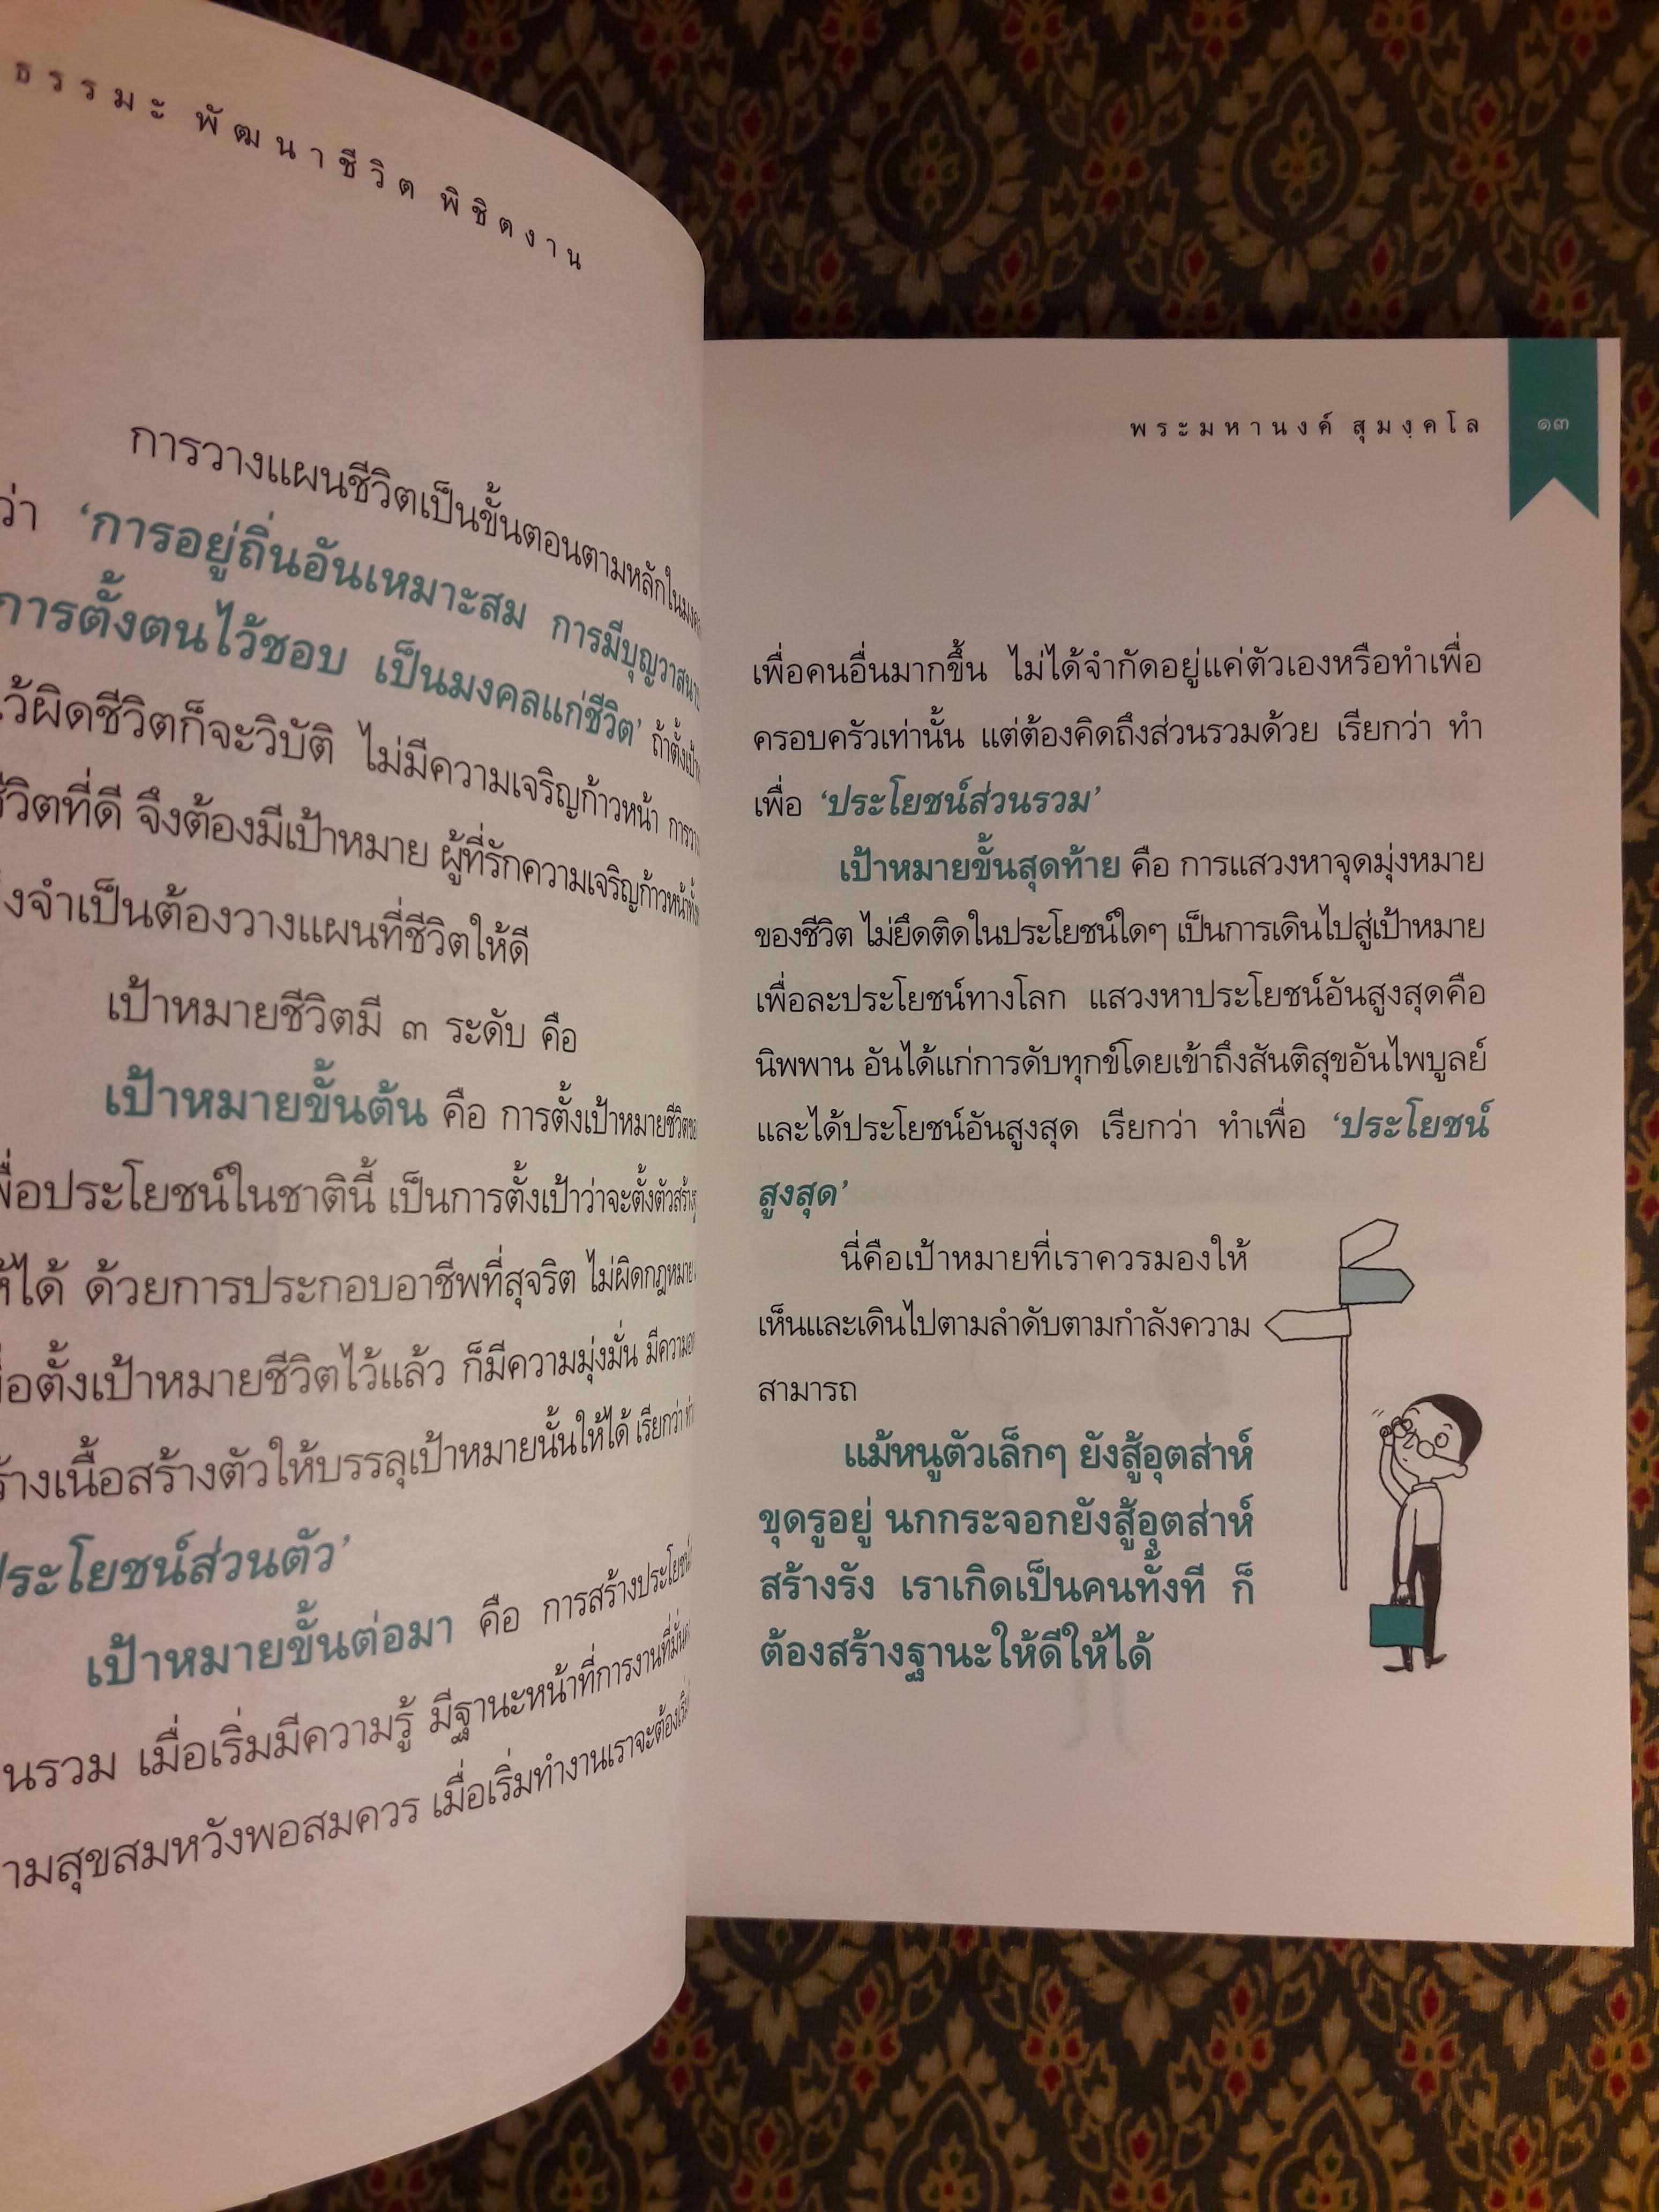 ธรรมะ พัฒนาชีวิต พิชิตงาน
การวางแผนชีวิตเป็นขั้นตอนตามหลักใน
ว่า ‘การอยู่ถิ่นอันเหมาะสม การมีบุญวาสนา
การตั้งตนไว้ชอบ เป็นมงคลแก่ชีวิต’ ถ้าตั้งเป้า
ผิดชีวิตก็จะวิบัติ ไม่มีความเจริญก้าวหน้า
ชีวิตที่ดี จึงต้องมีเป้าหมาย ผู้ที่รักความเจริญก้าวหน้า
จำเป็นต้องวางแผนที่ชีวิตให้ดี
เป้าหมายชีวิตมี ๓ ระดับ คือ
เป้าหมายขั้นต้น คือ การตั้งเป้าหมายชีวิต
เพื่อประโยชน์ในชาตินี้ เป็นการตั้งเป้าว่าจะตั้งตัว
ให้ได้ ด้วยการประกอบอาชีพที่สุจริต ไม่ผิดกฎหมาย
เมื่อตั้งเป้าหมายชีวิตไว้แล้ว ก็มีความมุ่งมั่น
สร้างเนื้อสร้างตัวให้บรรลุเป้าหมายนั้นให้ได้ เรียกว่า
ประโยชน์ส่วนตัว’
เป้าหมายขั้นต่อมา คือ การสร้างประโยชน์
รวม เมื่อเริ่มมีความรู้ มีฐานะหน้าที่การงานที่
สุขสมหวังพอสมควร เมื่อเริ่มทำงานเราจะต้อง
พระมหานงค์ สุมงฺคโล ๑๓
เพื่อคนอื่นมากขึ้น ไม่ได้จำกัดอยู่แค่ตัวเองหรือทำเพื่อ
ครอบครัวเท่านั้น แต่ต้องคิดถึงส่วนรวมด้วย เรียกว่า ทำ
เพื่อ ‘ประโยชน์ส่วนรวม’
เป้าหมายขั้นสุดท้าย คือ การแสวงหาจุดมุ่งหมาย
ของชีวิต ไม่ยึดติดในประโยชน์ใดๆ เป็นการเดินไปสู่เป้าหมาย
เพื่อละประโยชน์ทางโลก แสวงหาประโยชน์อันสูงสุดคือ
นิพพาน อันได้แก่การดับทุกข์โดยเข้าถึงสันติสุขอันไพบูลย์
และได้ประโยชน์อันสูงสุด เรียกว่า ทำเพื่อ ‘ประโยชน์
สูงสุด’
นี่คือเป้าหมายที่เราควรมองให้
เห็นและเดินไปตามลำดับตามกำลังความ
สามารถ
แม้หนูตัวเล็กๆ ยังสู้อุตส่าห์
ขุดรูอยู่ นกกระจอกยังสู้อุตส่าห์
สร้างรัง เราเกิดเป็นคนทั้งที ก็
ต้องสร้างฐานะให้ดีให้ได้